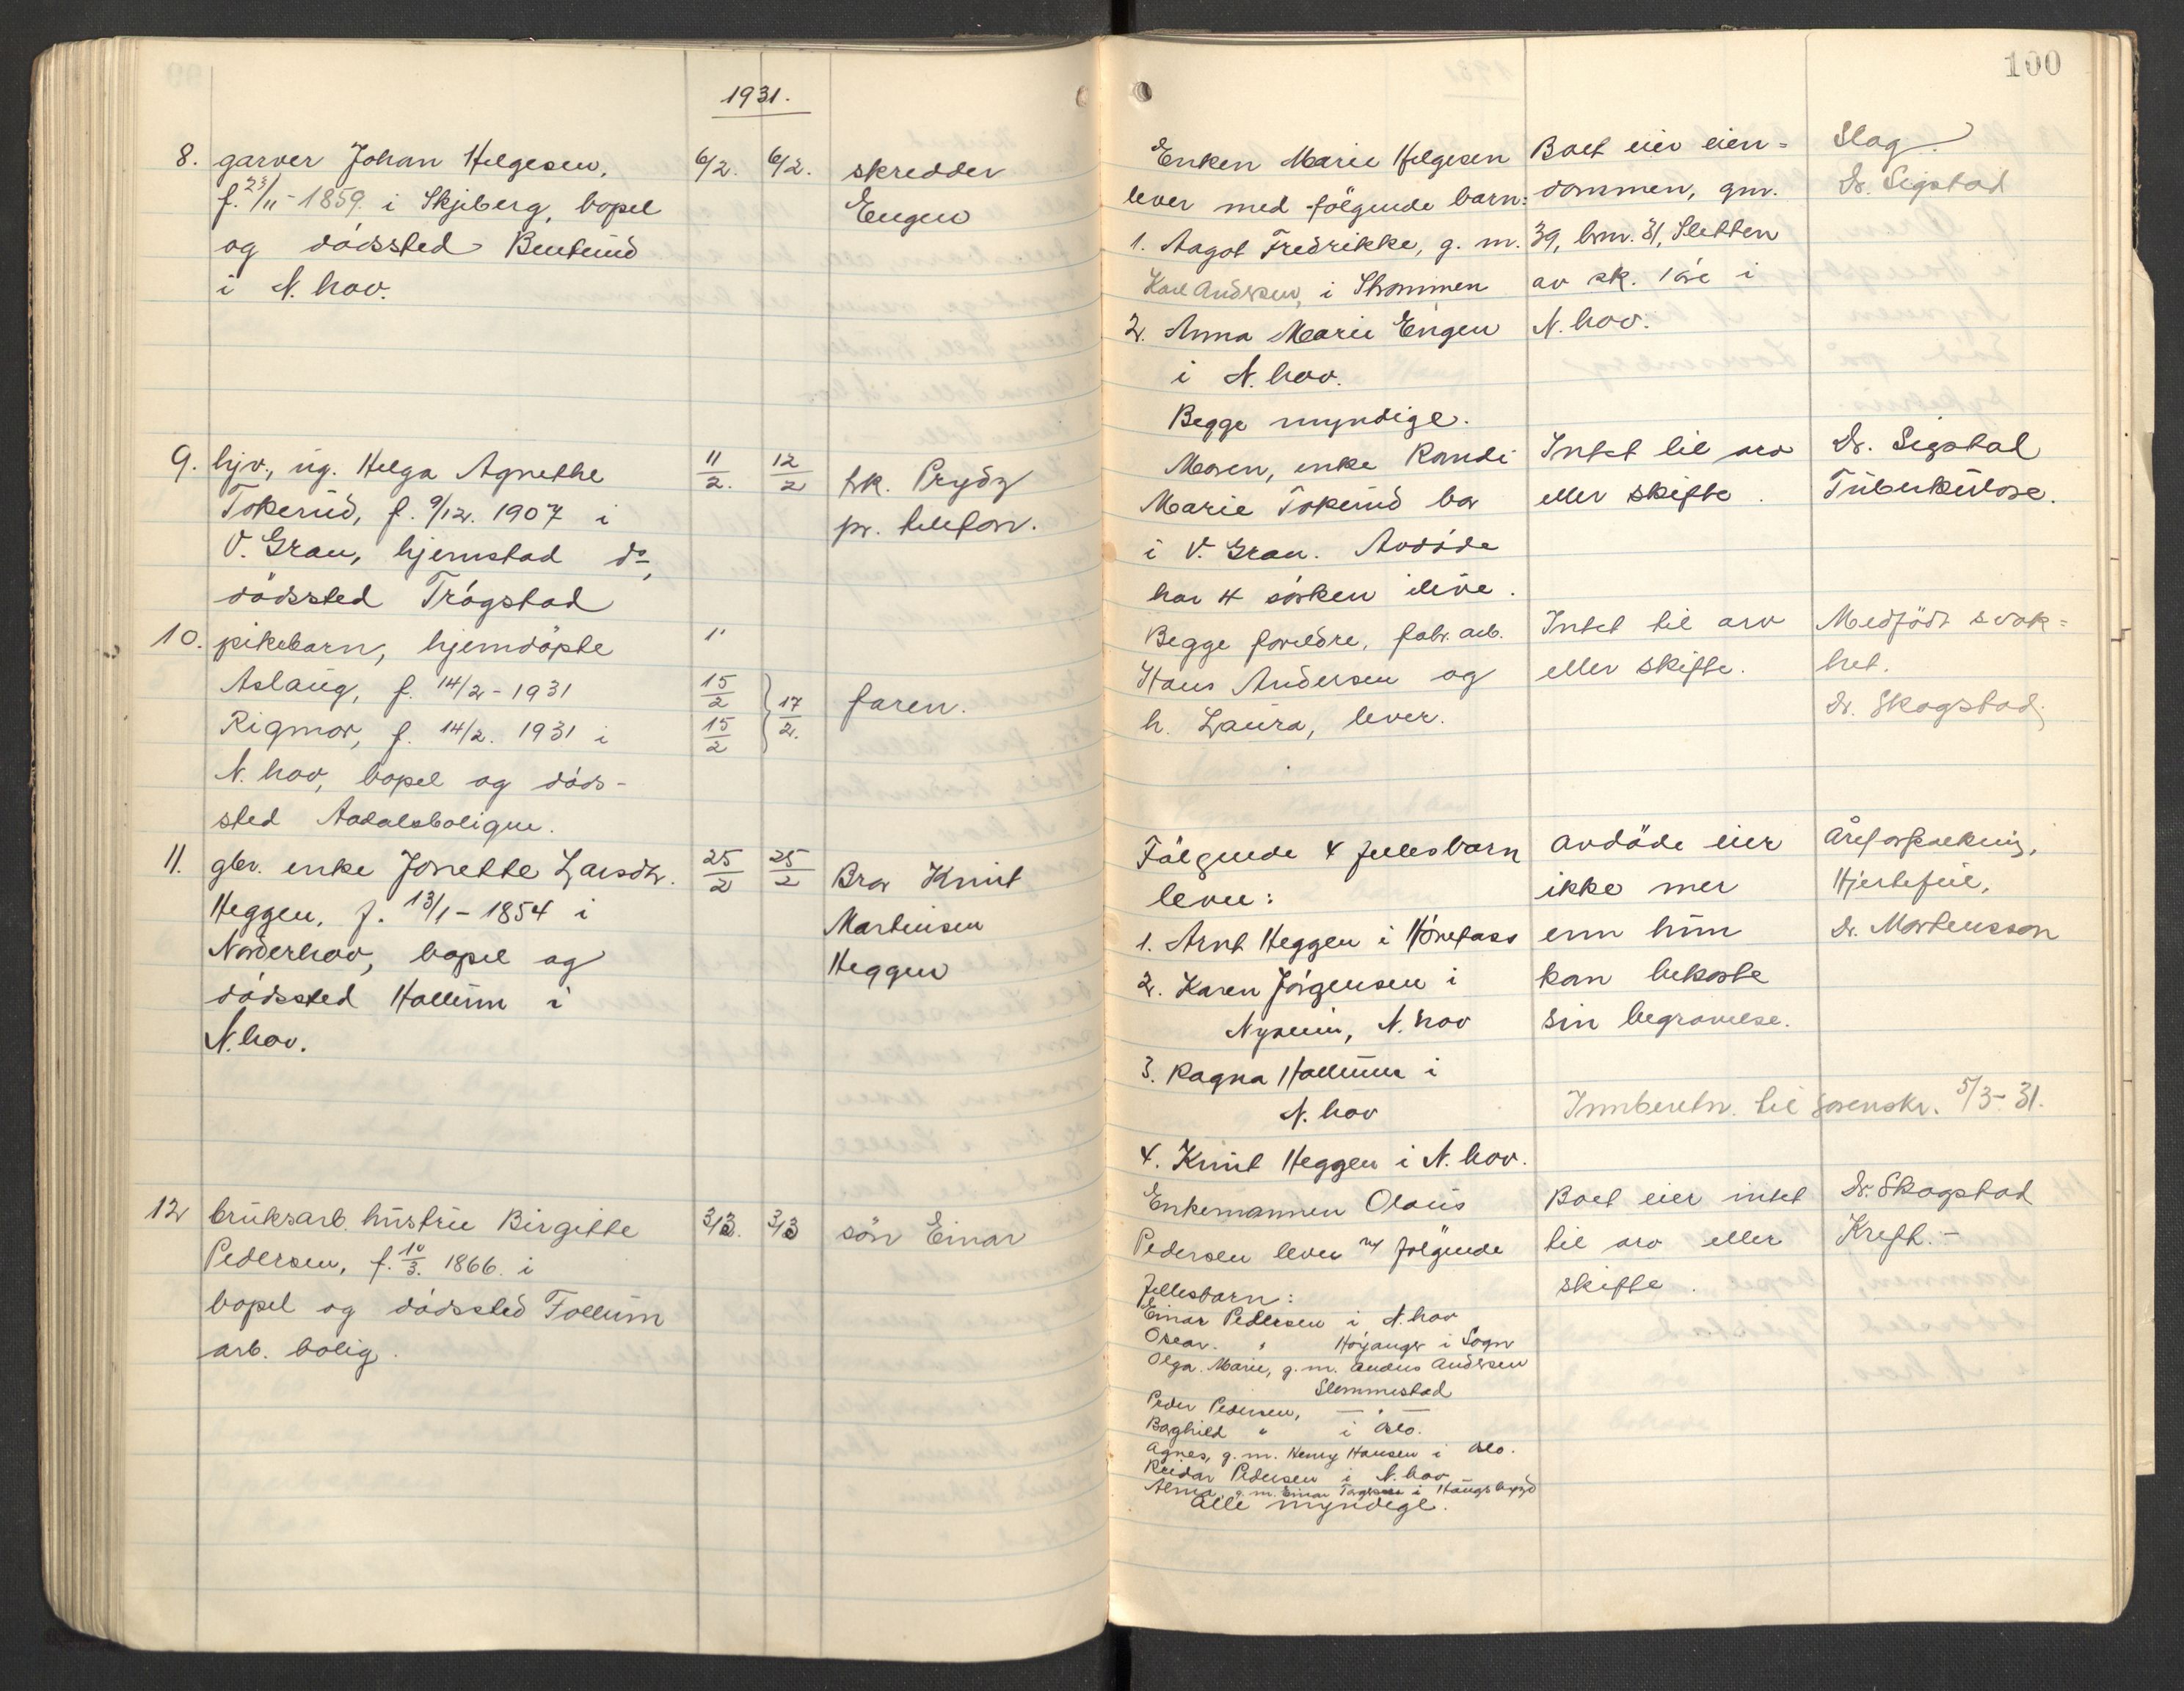 1931.
8. garver Johan Helgesen,
f. 23/11 - 1859. i Skjeberg, bopel
og dödssted Benterud
i N. hov.
6/2. 6/2. skredder
Engen
9. hjv., ug. Helga Agnethe
Tokerud, f. 9/12. 1907 i
V. Gran, hjemstad do,
dödssted Trögstad
11/2. 12/2 hk. Prydz
pr. telefon.
10. pikebarn, hjemdöpte
Aslaug, f. 14/2 - 1931
Rigmor, f. 14/2. 1931 i
N. hov, bopel og döds-
sted Aadalsboligen.
"
15/2
15/2 } 17/2. faren.
11. gbr. enke Jonette Larsdtr.
Heggen, f. 13/1 - 1854 i
Norderhov, bopel og
dödssted Hallum i
N. hov.
25/2 25/2 Bror Knut
Martinsen
Heggen
12 bruksarb. hustru Birgitte
Pedersen, f. 10/3. 1866. i
bopel og dödssted Follum
arb. bolig.
3/3. 3/3 sön Einar
100
Enken Marie Helgesen
lever med fölgende barn:
1. Aagot Fredrikke, g. m.
Karl Andersen, i Strömmen
2. Anna Marie Engen
i N. hov.
Begge myndige.
Boet eier eien-
dommen, gnr.
39, bnr. 81, Sletten
av sk. 1 öre i
N. hov.
Slag.
Dr. Sigstad
Moren, enke Randi
Marie Tokerud bor
i V. Gran. Avdöde
har 4 sösken ilive.
Intet til arv
eller skifte.
Dr. Sigstad
Tuberkulose.
Begge foreldre, fabr. arb.
Hans Andersen og
h. Laura, lever.
Intet til arv
eller skifte.
Medfödt svak-
het.
Dr. Skogstad.
Fölgende 4 fellesbarn
lever:
1. Arnt Heggen i Hönefoss
2. Karen Jörgensen i
N. hov
3. Ragna Hallum i
N. hov
4. Knut Heggen i N. hov.
avdöde eier
ikke mer
enn hun
kan bekoste
sin begravelse.
Åreforkalkning,
Hjertefeil,
Dr. Mortensson
Innberetn. til sorenskr. 5/3 - 31.
Enkemannen Olaus
Pedersen lever m/ fölgende
fellesbarn:
Einar Pedersen i N. hov
Oscar. " Höyanger i Sogn
Olga Marie, g. m. Anders Andersen
Slemmestad
Peder Pedersen, — " —
Raghild " i Oslo.
Agnes, g. m. Henry Hansen i Oslo.
Reidar Pedersen i N. hov
Alma, g. m. Einar i Haugsbygd
Alle myndige.
Boet eier intet
til arv eller
skifte.
Dr. Skogstad
Kreft. -